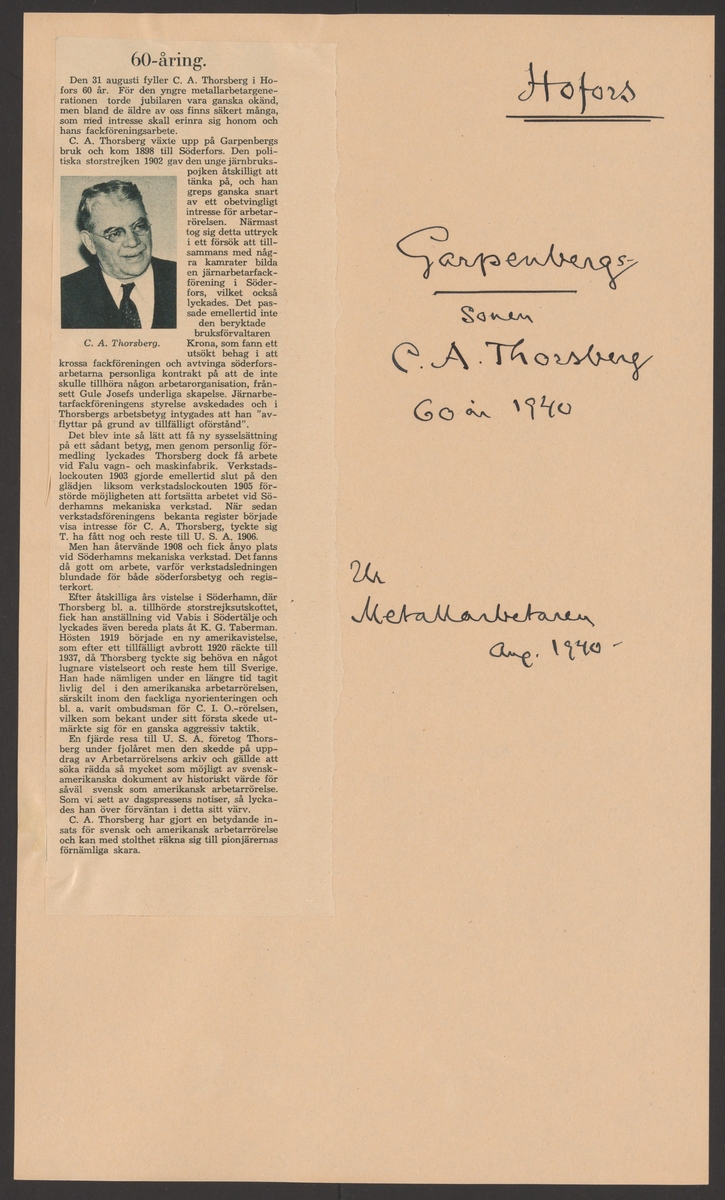 60-åring.
Den 31 augusti fyller C. A. Thorsberg i Ho-
fors 60 år. För den yngre metallarbetargene-
rationen torde jubilaren vara ganska okänd,
men bland de äldre av oss finns säkert många,
som med intresse skall erinra sig honom och
hans fackföreningsarbete.
C. A. Thorsberg växte upp på Garpenbergs
bruk och kom 1898 till Söderfors. Den poli-
tiska storstrejken 1902 gav den unge järnbruks-
pojken åtskilligt att
tänka på, och han
greps ganska snart
av ett obetvingligt
intresse för arbetar-
rörelsen. Närmast
tog sig detta uttryck
i ett försök att till-
sammans med någ-
ra kamrater bilda
en järnarbetarfack-
förening i Söder-
fors, vilket också
lyckades. Det pas-
sade emellertid inte
den beryktade
bruksförvaltaren
Krona, som fann ett
utsökt behag i att
C. A. Thorsberg.
krossa fackföreningen och avtvinga söderfors-
arbetarna personliga kontrakt på att de inte
skulle tillhöra någon arbetarorganisation, från-
sett Gule Josefs underliga skapelse. Järnarbe-
tarfackföreningens styrelse avskedades och i
Thorsbergs arbetsbetyg intygades att han "av-
flyttar på grund av tillfälligt oförstånd".
Det blev inte så lätt att få ny sysselsättning
på ett sådant betyg, men genom personlig för-
medling lyckades Thorsberg dock få arbete
vid Falu vagn- och maskinfabrik. Verkstads-
lockouten 1903 gjorde emellertid slut på den
glädjen liksom verkstadslockouten 1905 för-
störde möjligheten att fortsätta arbetet vid Sö-
derhamns mekaniska verkstad. När sedan
verkstadsföreningens bekanta register började
visa intresse för C. A. Thorsberg, tyckte sig
T. ha fått nog och reste till U. S. A. 1906.
Men han återvände 1908 och fick ånyo plats
vid Söderhamns mekaniska verkstad. Det fanns
då gott om arbete, varför verkstadsledningen
blundade för både söderforsbetyg och regis-
terkort.
Efter åtskilliga års vistelse i Söderhamn, där
Thorsberg bl. a. tillhörde storstrejksutskottet,
fick han anställning vid Vabis i Södertälje och
lyckades även bereda plats åt K. G. Taberman.
Hösten 1919 började en ny amerikavistelse,
som efter ett tillfälligt avbrott 1920 räckte till
1937, då Thorsberg tyckte sig behöva en något
lugnare vistelseort och reste hem till Sverige.
Han hade nämligen under en längre tid tagit
livlig del i den amerikanska arbetarrörelsen,
särskilt inom den fackliga nyorienteringen och
bl. a. varit ombudsman för C. I. O.-rörelsen,
vilken som bekant under sitt första skede ut-
märkte sig för en ganska aggressiv taktik.
En fjärde resa till U. S. A. företog Thors-
berg under fjolåret men den skedde på upp-
drag av Arbetarrörelsens arkiv och gällde att
söka rädda så mycket som möjligt av svensk-
amerikanska dokument av historiskt värde för
såväl svensk som amerikansk arbetarrörelse.
Som vi sett av dagspressens notiser, så lycka-
des han över förväntan i detta sitt värv.
C. A. Thorsberg har gjort en betydande in-
sats för svensk och amerikansk arbetarrörelse
och kan med stolthet räkna sig till pionjärernas
förnämliga skara.
Hofors
Garpenbergs-
sonen
C. A. Thorsberg
60 år 1940
Ur
Metallarbetaren
Aug. 1940 -